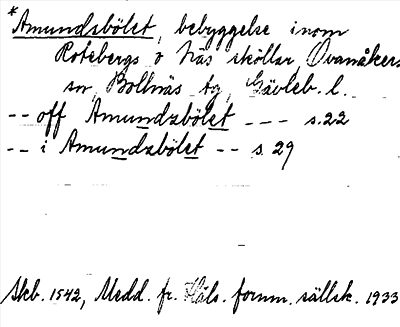 *Amundsbölet, bebyggelse inom
Rotebergs o Näs skällar Ovanåkers
sn, Bollnäs tg, Gävleb. l.
-- off Amundzbölet --- s.22
-- i Amundzbölet -- s. 29
Skb. 1542, Medd. fr. Häls. fornm. sällsk. 1933